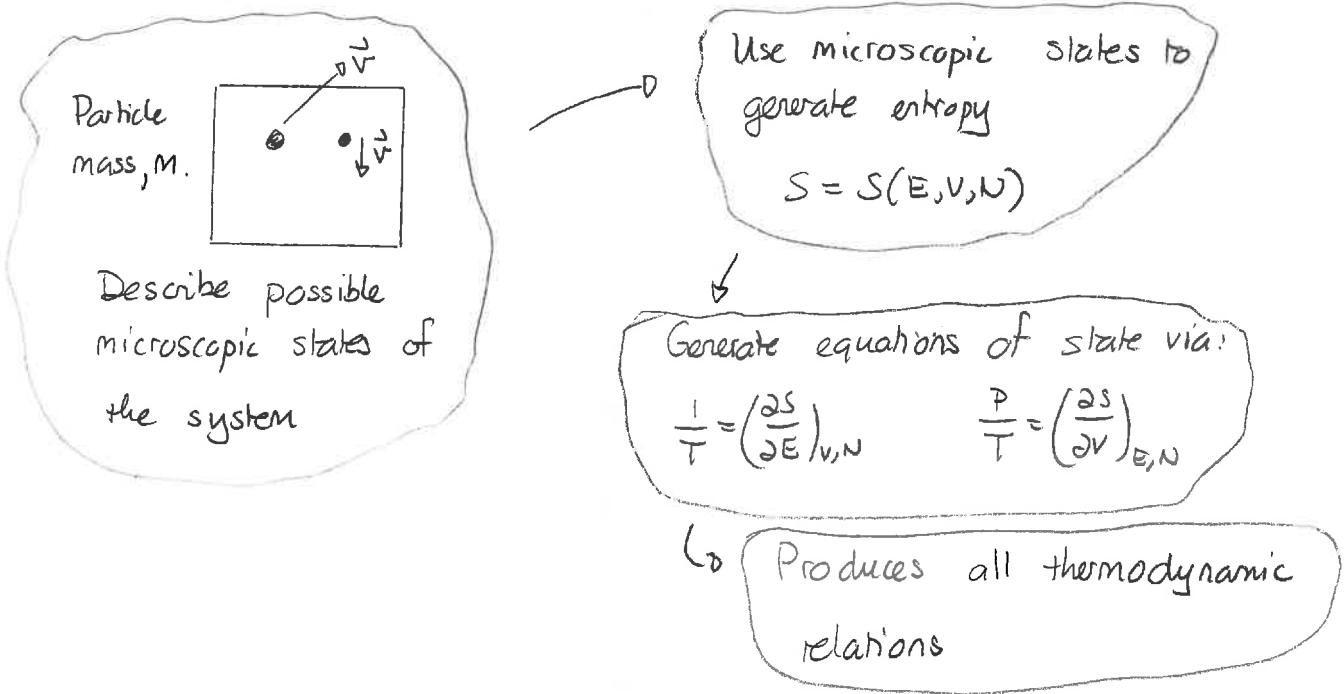 Particle
mass, M.
v⃗
v⃗
Describe possible
microscopic states of
the system
Use microscopic states to
generate entropy
S = S(E,V,N)
Generate equations of state via:
1/T = (∂S/∂E)V,N P/T = (∂S/∂V)E,N
Produces all thermodynamic
relations